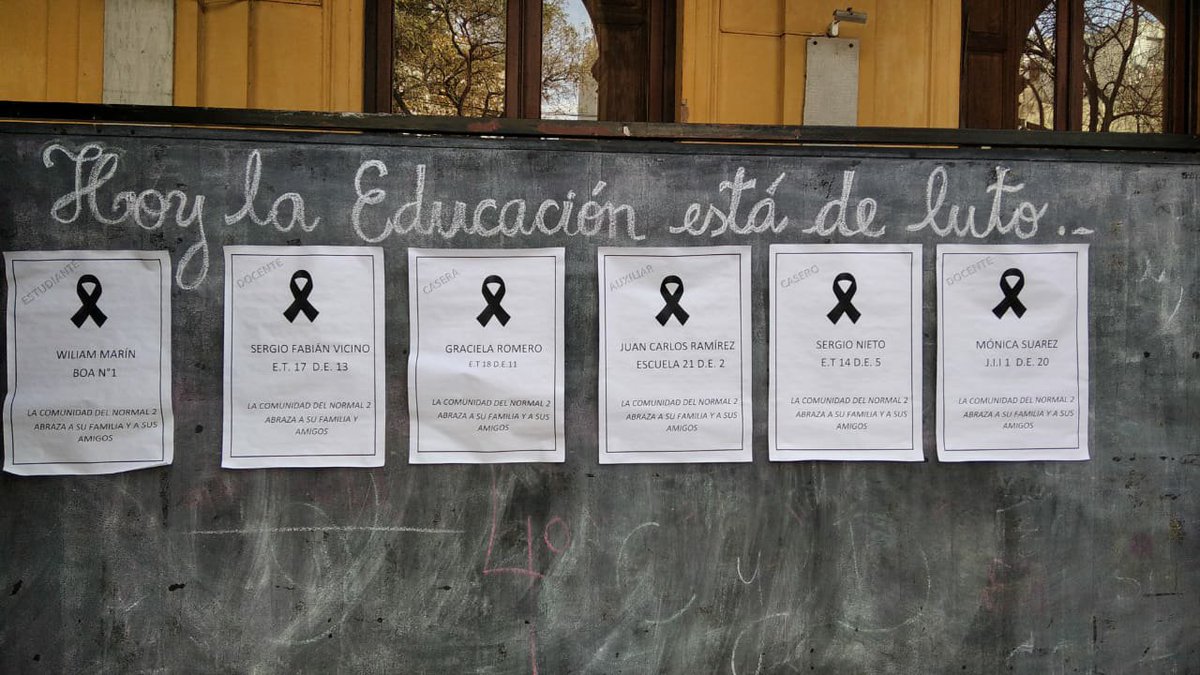 Hoy la Educación está de luto...
ESTUDIANTE
WILIAM MARÍN
BOA N°1
LA COMUNIDAD DEL NORMAL 2
ABRAZA A SU FAMILIA Y A SUS
AMIGOS
DOCENTE
SERGIO FABIÁN VICINO
E.T. 17 D.E. 13
LA COMUNIDAD DEL NORMAL 2
ABRAZA A SU FAMILIA Y
AMIGOS
CASERA
GRACIELA ROMERO
E.T 18 D.E.11
LA COMUNIDAD DEL NORMAL 2
ABRAZA A SU FAMILIA Y A SUS
AMIGOS
AUXILIAR
JUAN CARLOS RAMÍREZ
ESCUELA 21 D.E. 2
LA COMUNIDAD DEL NORMAL 2
ABRAZA A SU FAMILIA Y A SUS
AMIGOS
CASERO
SERGIO NIETO
E.T 14 D.E. 5
LA COMUNIDAD DEL NORMAL 2
ABRAZA A SU FAMILIA Y A SUS
AMIGOS
DOCENTE
MÓNICA SUAREZ
J.I.I 1 D.E. 20
LA COMUNIDAD DEL NORMAL 2
ABRAZA A SU FAMILIA Y A SUS
AMIGOS
4°